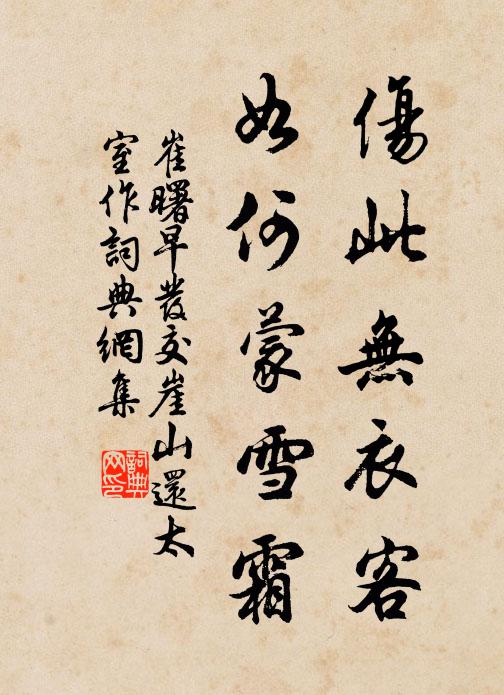 傷此無衣客
如何蒙雪霜
崔曙早發交崖山還太
室作詞典網集
詞典網印